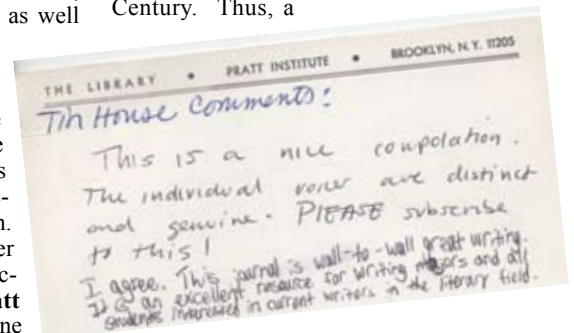 as well
Century. Thus, a
THE LIBRARY • PRATT INSTITUTE • BROOKLYN, N.Y. 11205
Tin House Comments:
This is a nice compolation.
The individual voices are distinct
and genuine. PlEASE subscribe
to this!
I agree. This journal is wall-to-wall great writing.
It is an excellent resource for writing majors and all
students interested in current writers in the literary field.
s
e-
n.
er
c-
att
ne